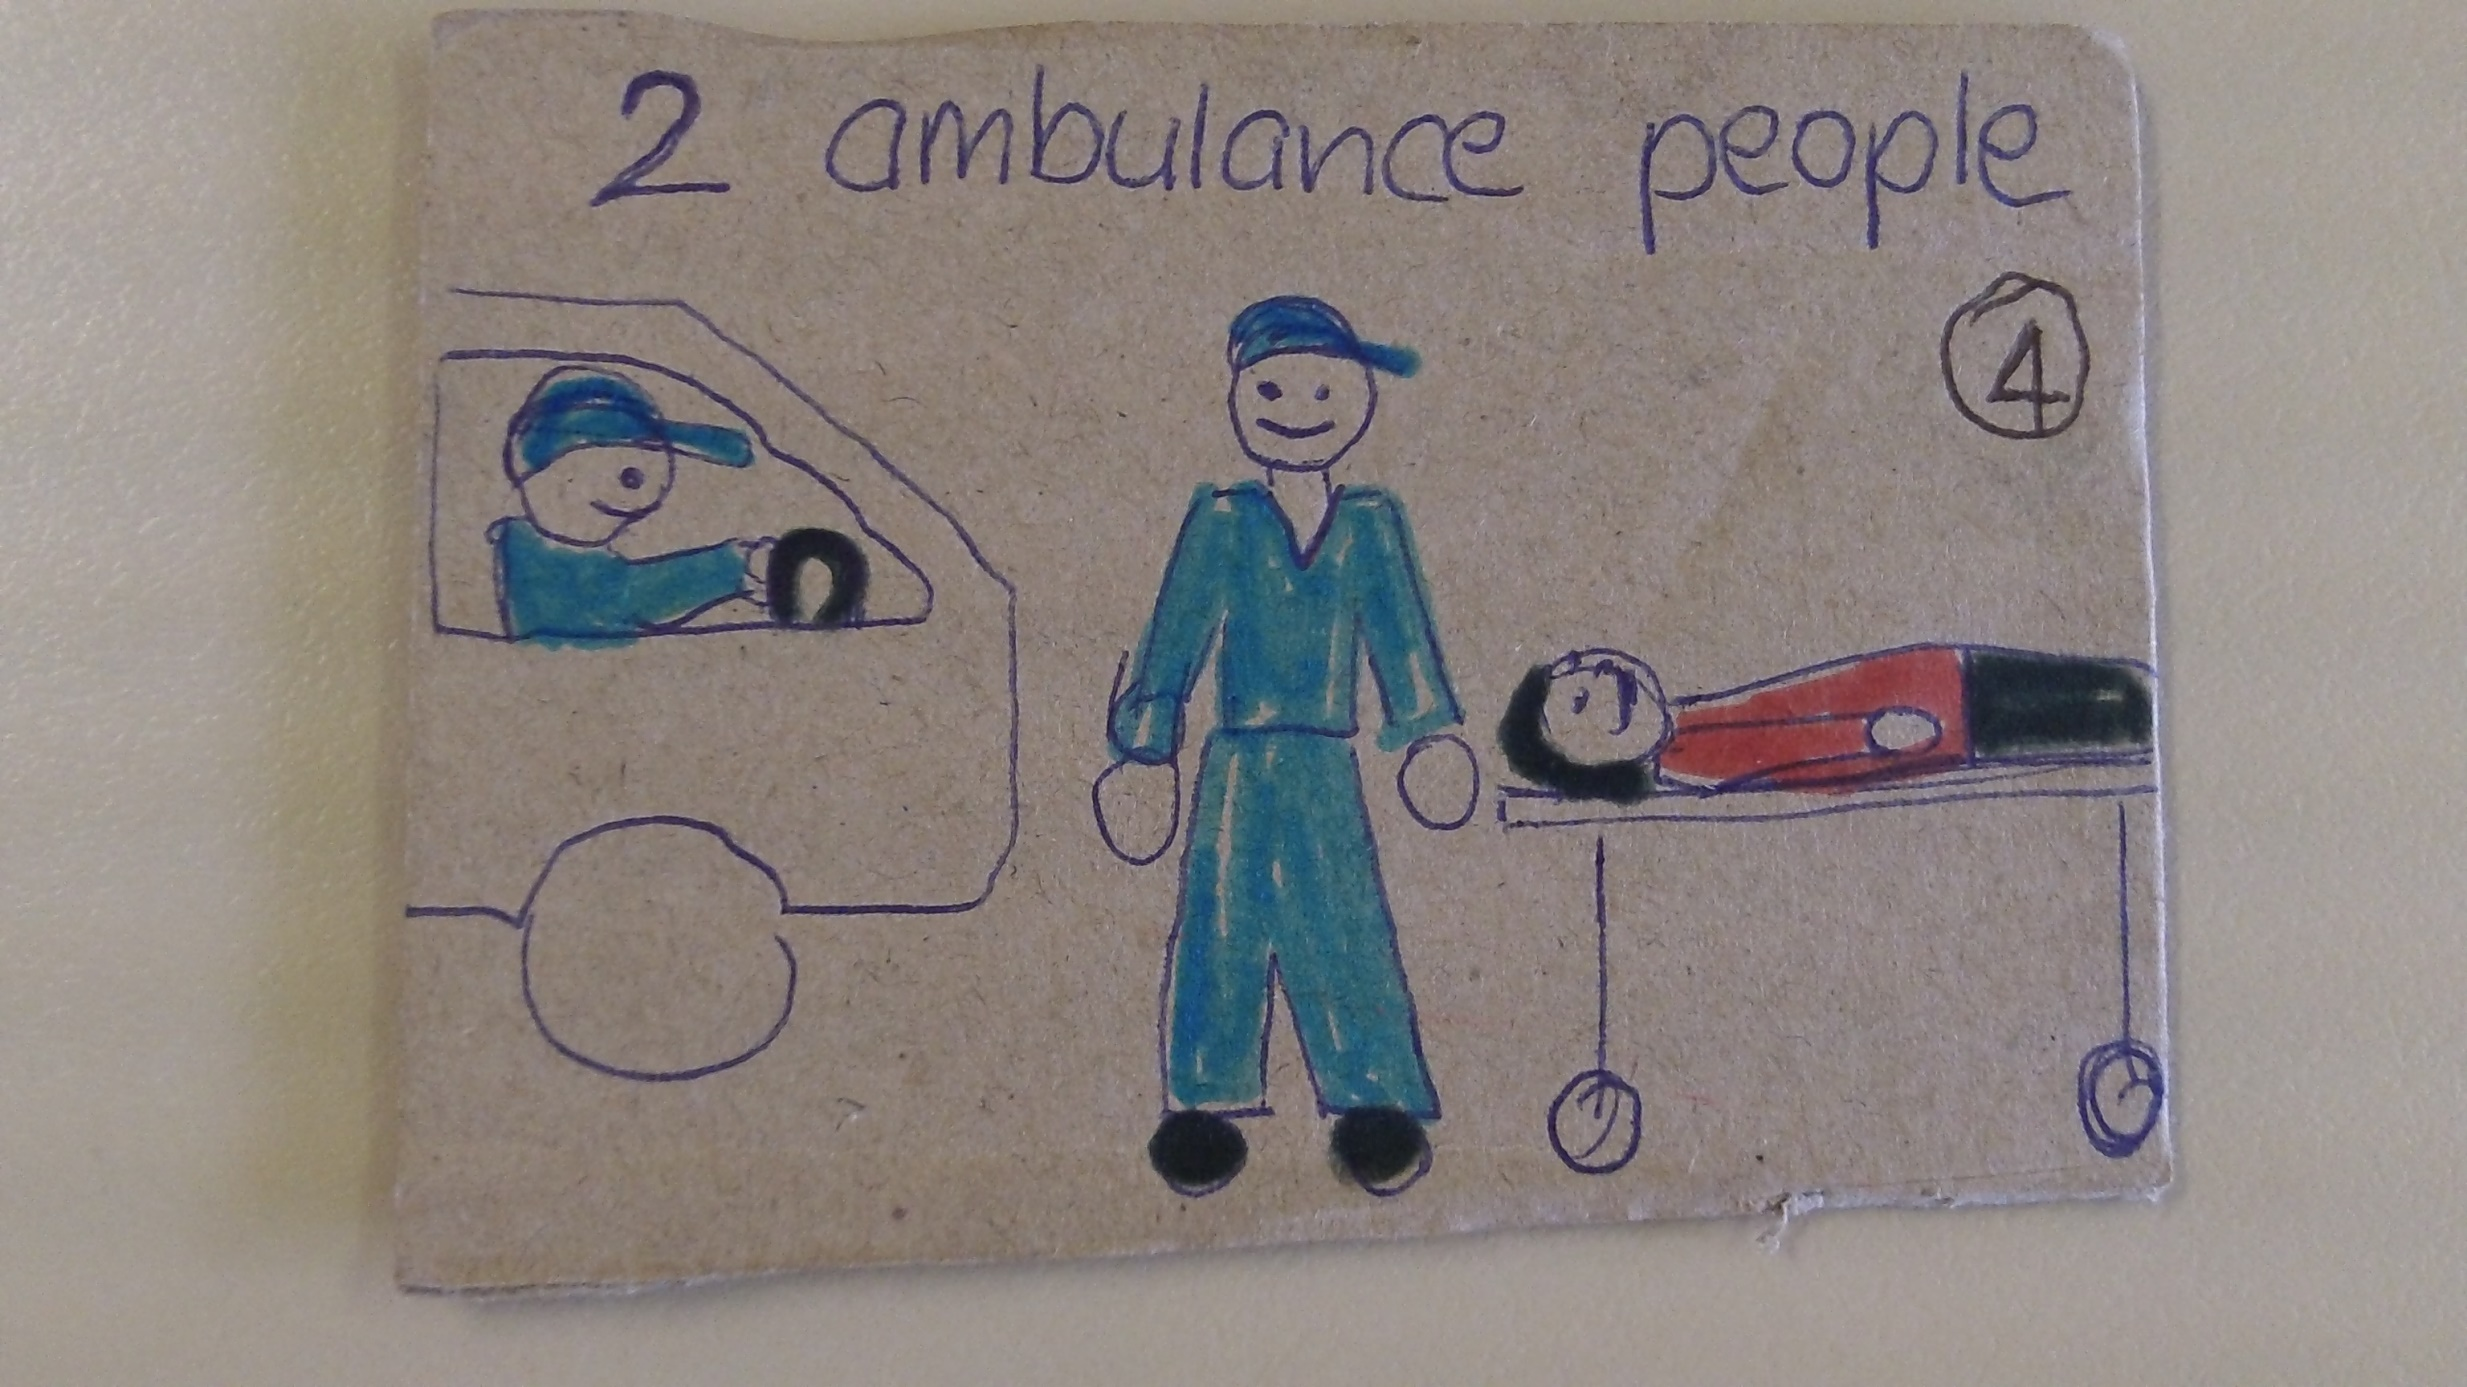 2 ambulance people
4